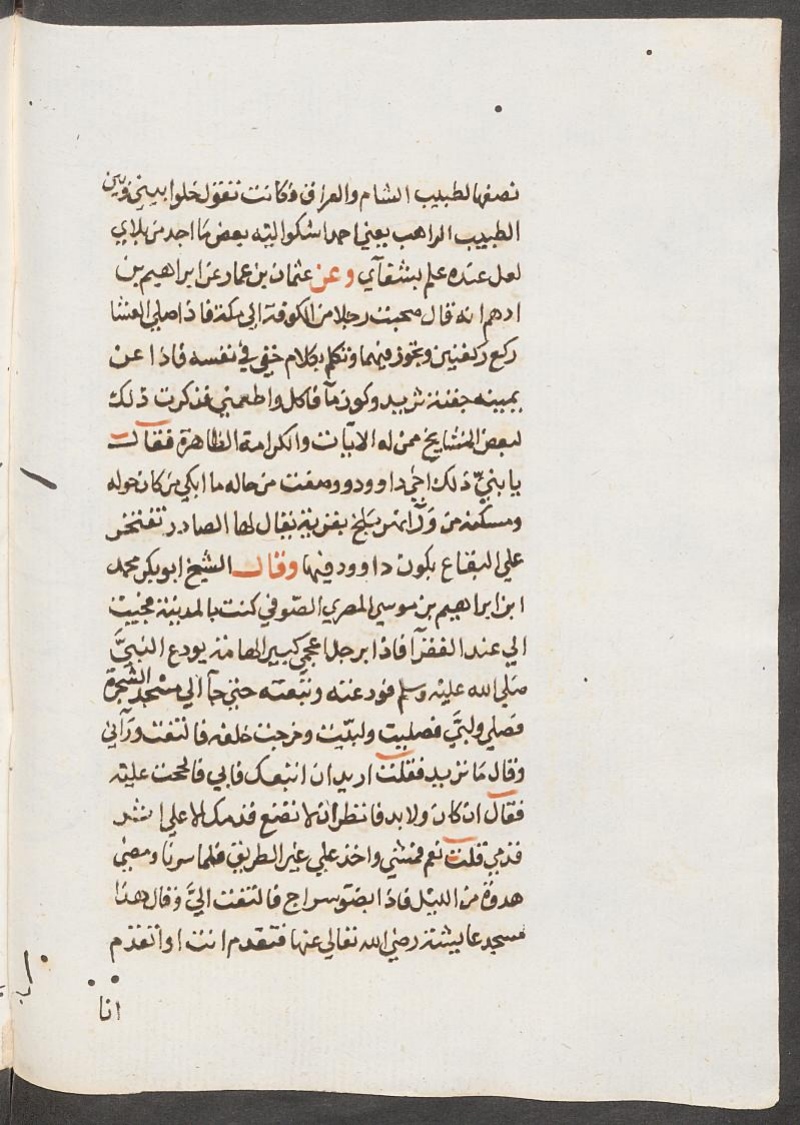 نصفها لطبيب الشام والعراق فكانت تقول خلوا بيني وبين
الطبيب الراهب يعني احدا شكوا اليه بعض ما اجد من بلاي
لعل عنده علم بشفآي وعن عثمان بن عماد عن ابراهيم بن
ادهم انه قال صحبت رجلا من الكوفة الى مكة فاذا صلي العشا
ركع ركعتين وتجوز فيهما وتكلم بكلام خفي في نفسه فاذا عن
يمينه جفنة ثريد وكوز مآ فاكل واطعمني فذكرت ذلك
لبعض المشايخ ممن له الايات والكرامة الظاهرة فقال
يا بني ذلك اخي داوود ووصفت من حاله ما ابكي من كان حوله
ومسكنه من ورآ نهر بلخ بقرية يقال لها الصادر تفتخر
على البقاع بكون داوود فيها وقال الشيخ ابو بكر محمد
ابن ابراهيم بن موسي المصري الصوفي كنت بالمدينة مجيت
الي عند الفقرآ فاذا برجل اعجمي كبير الهامة يودع النبيَّ
صلي الله عليه وسلم فودعته وتبعته حتي جآ الي مسجد الشجرة
فصلي ولبيَّ فصليت ولبيّت وخرجت خلفه فالتفت ورآني
وقال ما تريد فقلت اريد ان اتبعك فابي فالححت عليه
فقال ان كان ولابد فانظر ان لا تضع قدمك الا على اثر
قدمي قلت نعم فمشي واخذ علي غير الطريق فلما سرنا ومضي
هدوة من الليل فاذا بضو سراج فالتفت اليَّ وقال هذا
مسجد عايشة رضي الله تعالى عنها فتقدم انت او اتقدم
انا